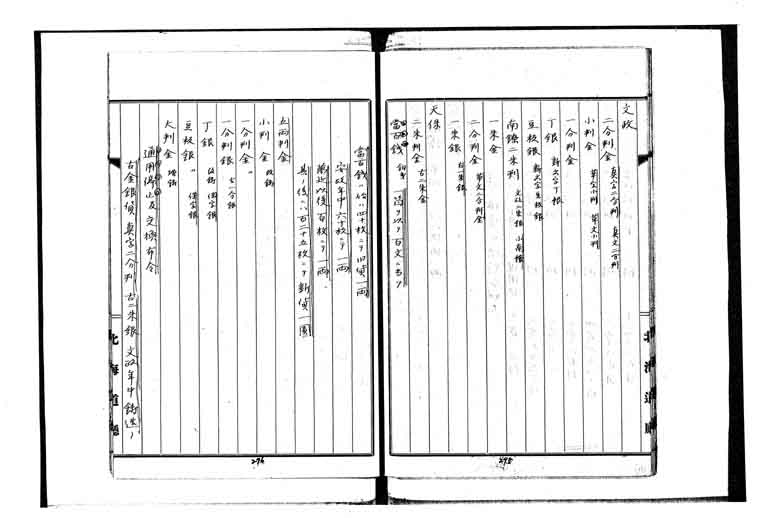 文政
二分判金 真字二分判 真文二分判
小判金 草字小判 草文小判
一分判金
丁銀 新文字丁銀
豆板銀 新文字豆板銀
南鐐二朱判
一朱金
二分判金 草文二分判金
一朱銀 古一朱銀
天保
二朱判金 古二朱金
當百銭 一箇ヲ以テ百文ニ当ツ
北海道廳
275
當百銭ハ始ハ四十枚ニテ旧貨一両
安政年中六十枚ニテ一両
萬延以後百枚ニテ一両
其ノ後ハ八百二十五枚ニテ新貨一圓
五両判金
小判金
一分判金〃
一分判銀 古一分銀
丁銀 保字銀
豆板銀〃 保字銀
大判金
通用停止及交換布令
古金銀貨 真字二分判 古二朱銀 文政年中鋳造ノ
北海道廳
274